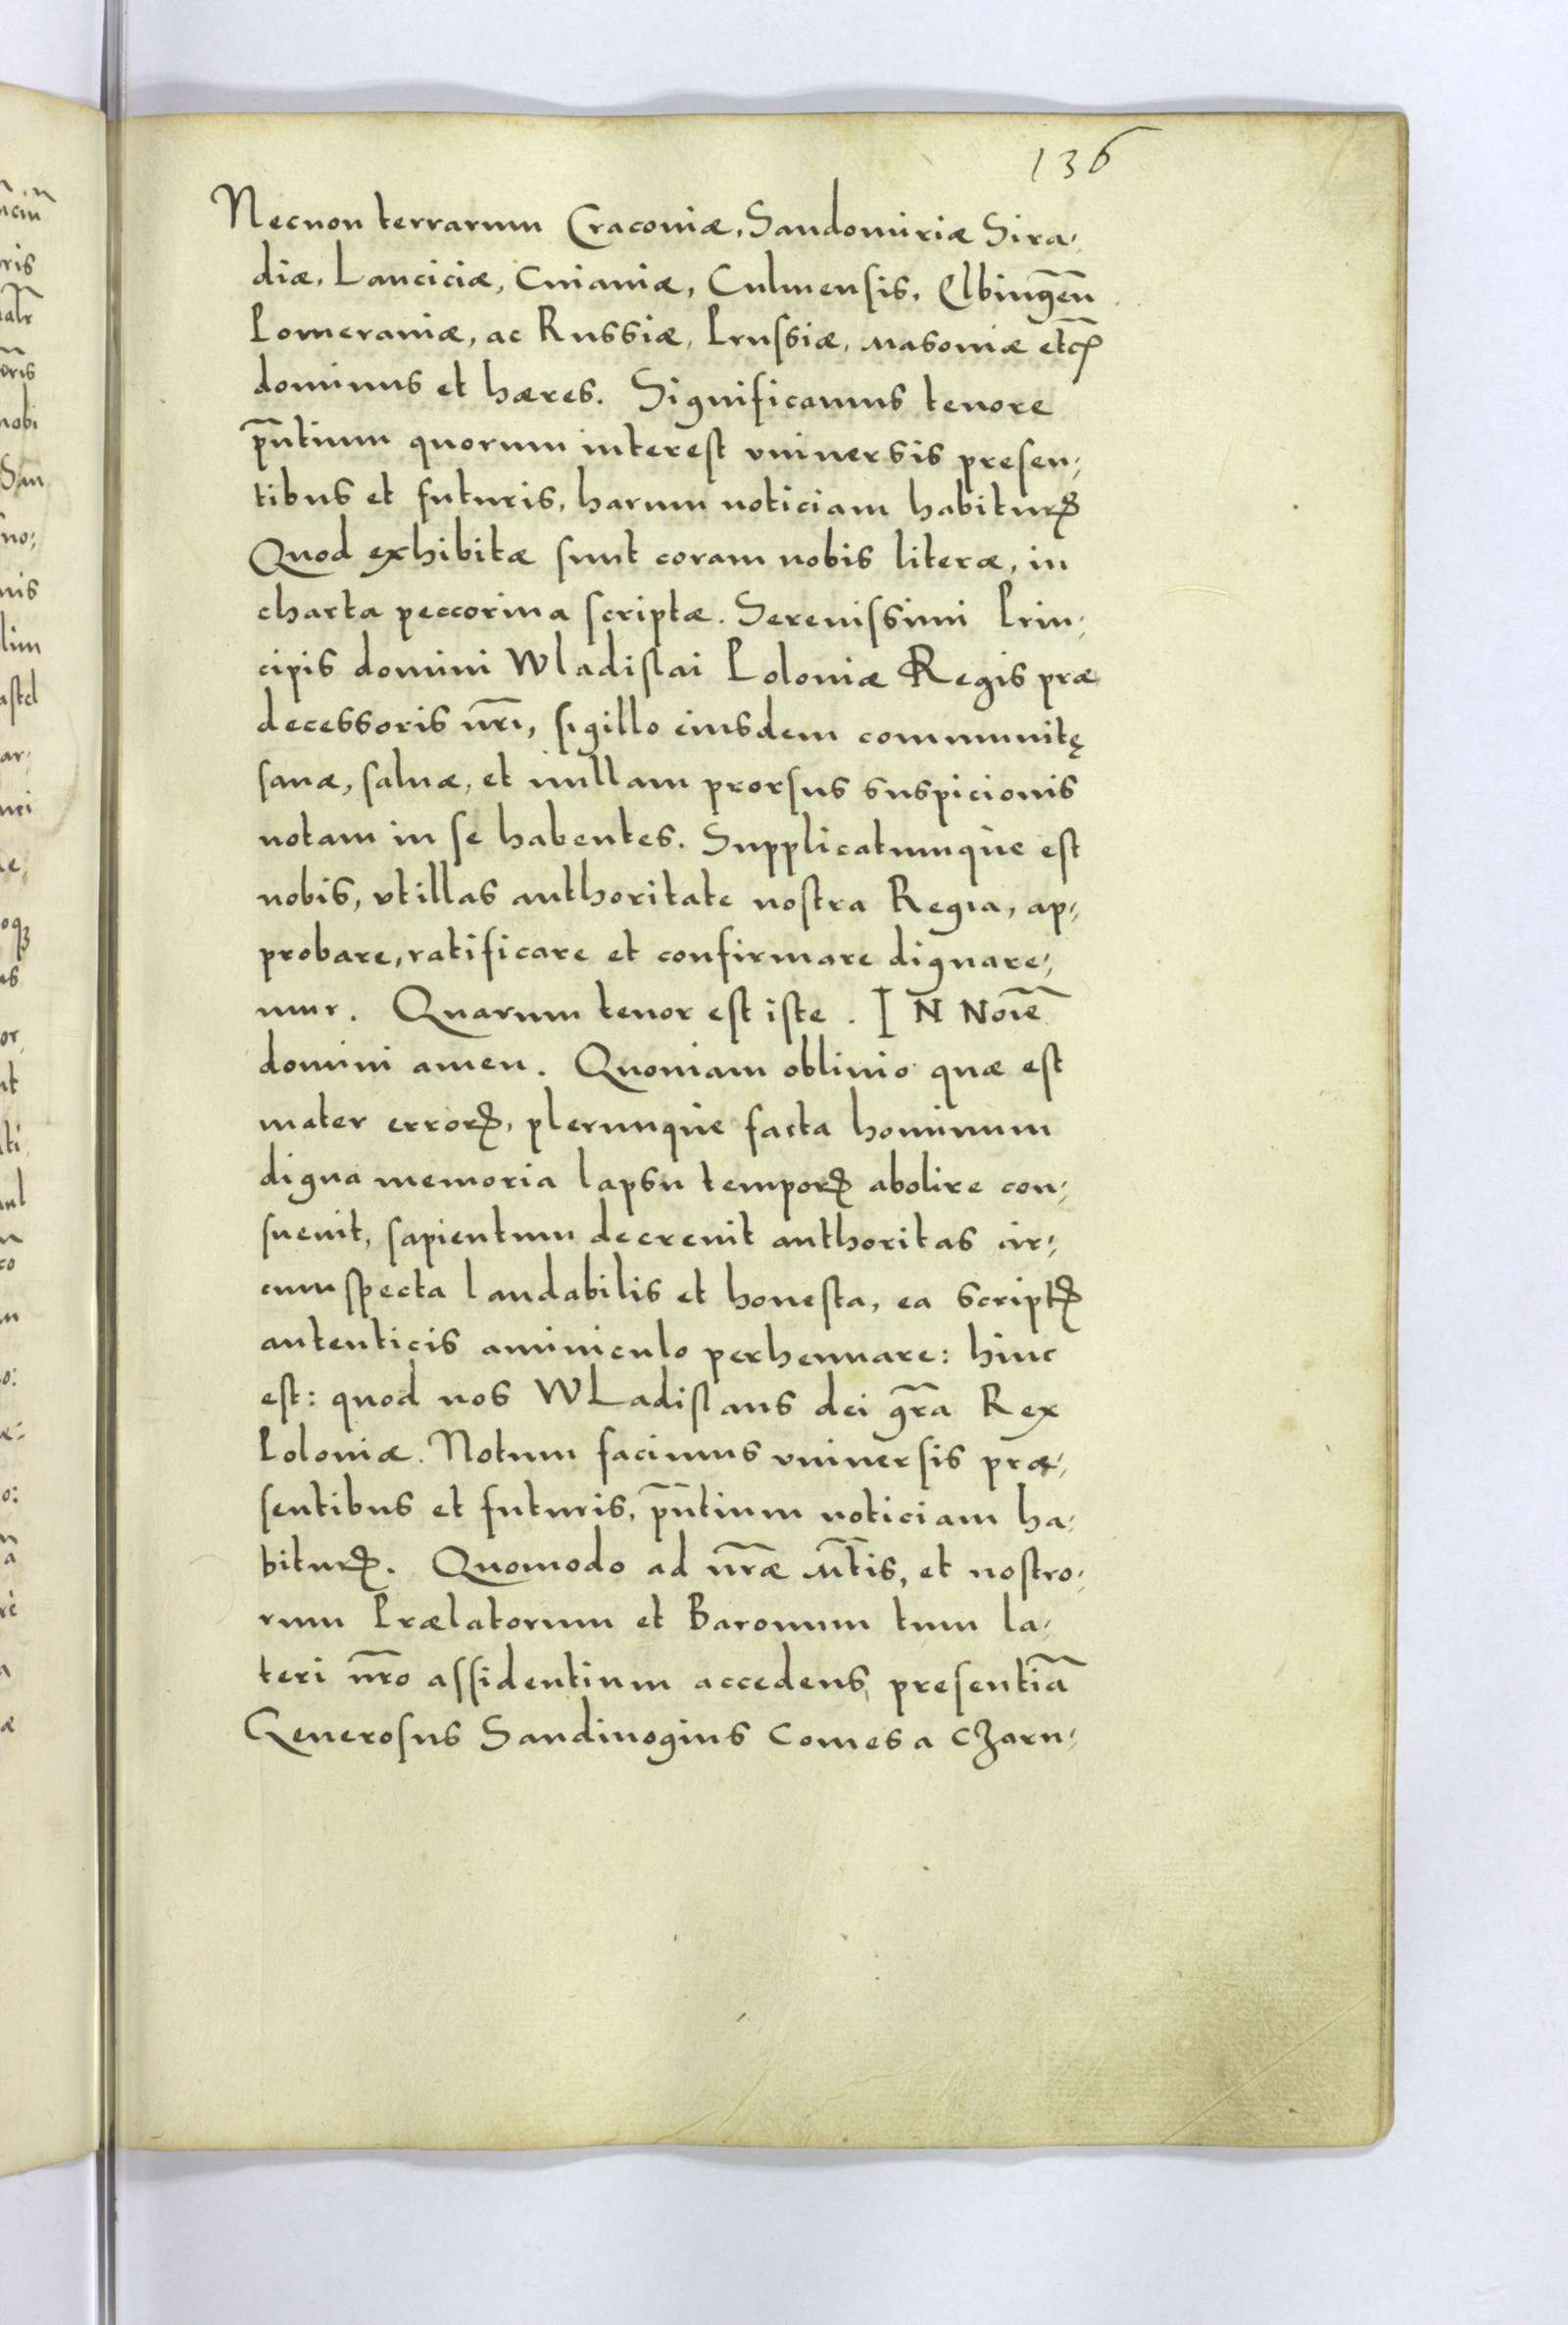 136
Necnon terrarum Cracoviæ, Sandomiriæ Sira-
diæ, Lanciciæ, Cuiaviæ, Culmensis, Elbingeñ
Pomeraniæ, ac Russiæ, Prussiæ, Masoviæ etc̃
dominus et hæres. Significamus tenore
p̃ntium quorum interest vniuersis presen-
tibus et futuris, harum noticiam habiturꝝ
Quod exhibitæ sunt coram nobis literæ, in
charta peccorina scriptæ. Serenissimi Prin-
cipis domini Wladislai Poloniæ Regis præ
decessoris nr̃i, sigillo eiusdem communitę
sanæ, saluæ, et nullam prorsus suspicionis
notam in se habentes. Supplicatumque est
nobis, vt illas authoritate nostra Regia, ap-
probare, ratificare et confirmare dignare-
mur. Quarum tenor est iste. IN Noĩe
domini amen. Quoniam obliuio quæ est
mater errorꝝ, plerunque facta hominum
digna memoria lapsu temporꝝ abolire con-
sueuit, sapientum decreuit authoritas cir-
cumspecta laudabilis et honesta, ea scriptꝝ
autenticis aminiculo perhennare: hinc
est: quod nos WLadislaus dei gr̃a Rex
Poloniæ. Notum facimus vniuersis præ-
sentibus et futuris, p̃ntium noticiam ha-
biturꝝ. Quomodo ad nr̃æ Mt̃is, et nostro-
rum Prælatorum et Baronum tum la-
teri nr̃o assidentium accedens presentiã
Generosus Sandiuogius Comes a Czarn-